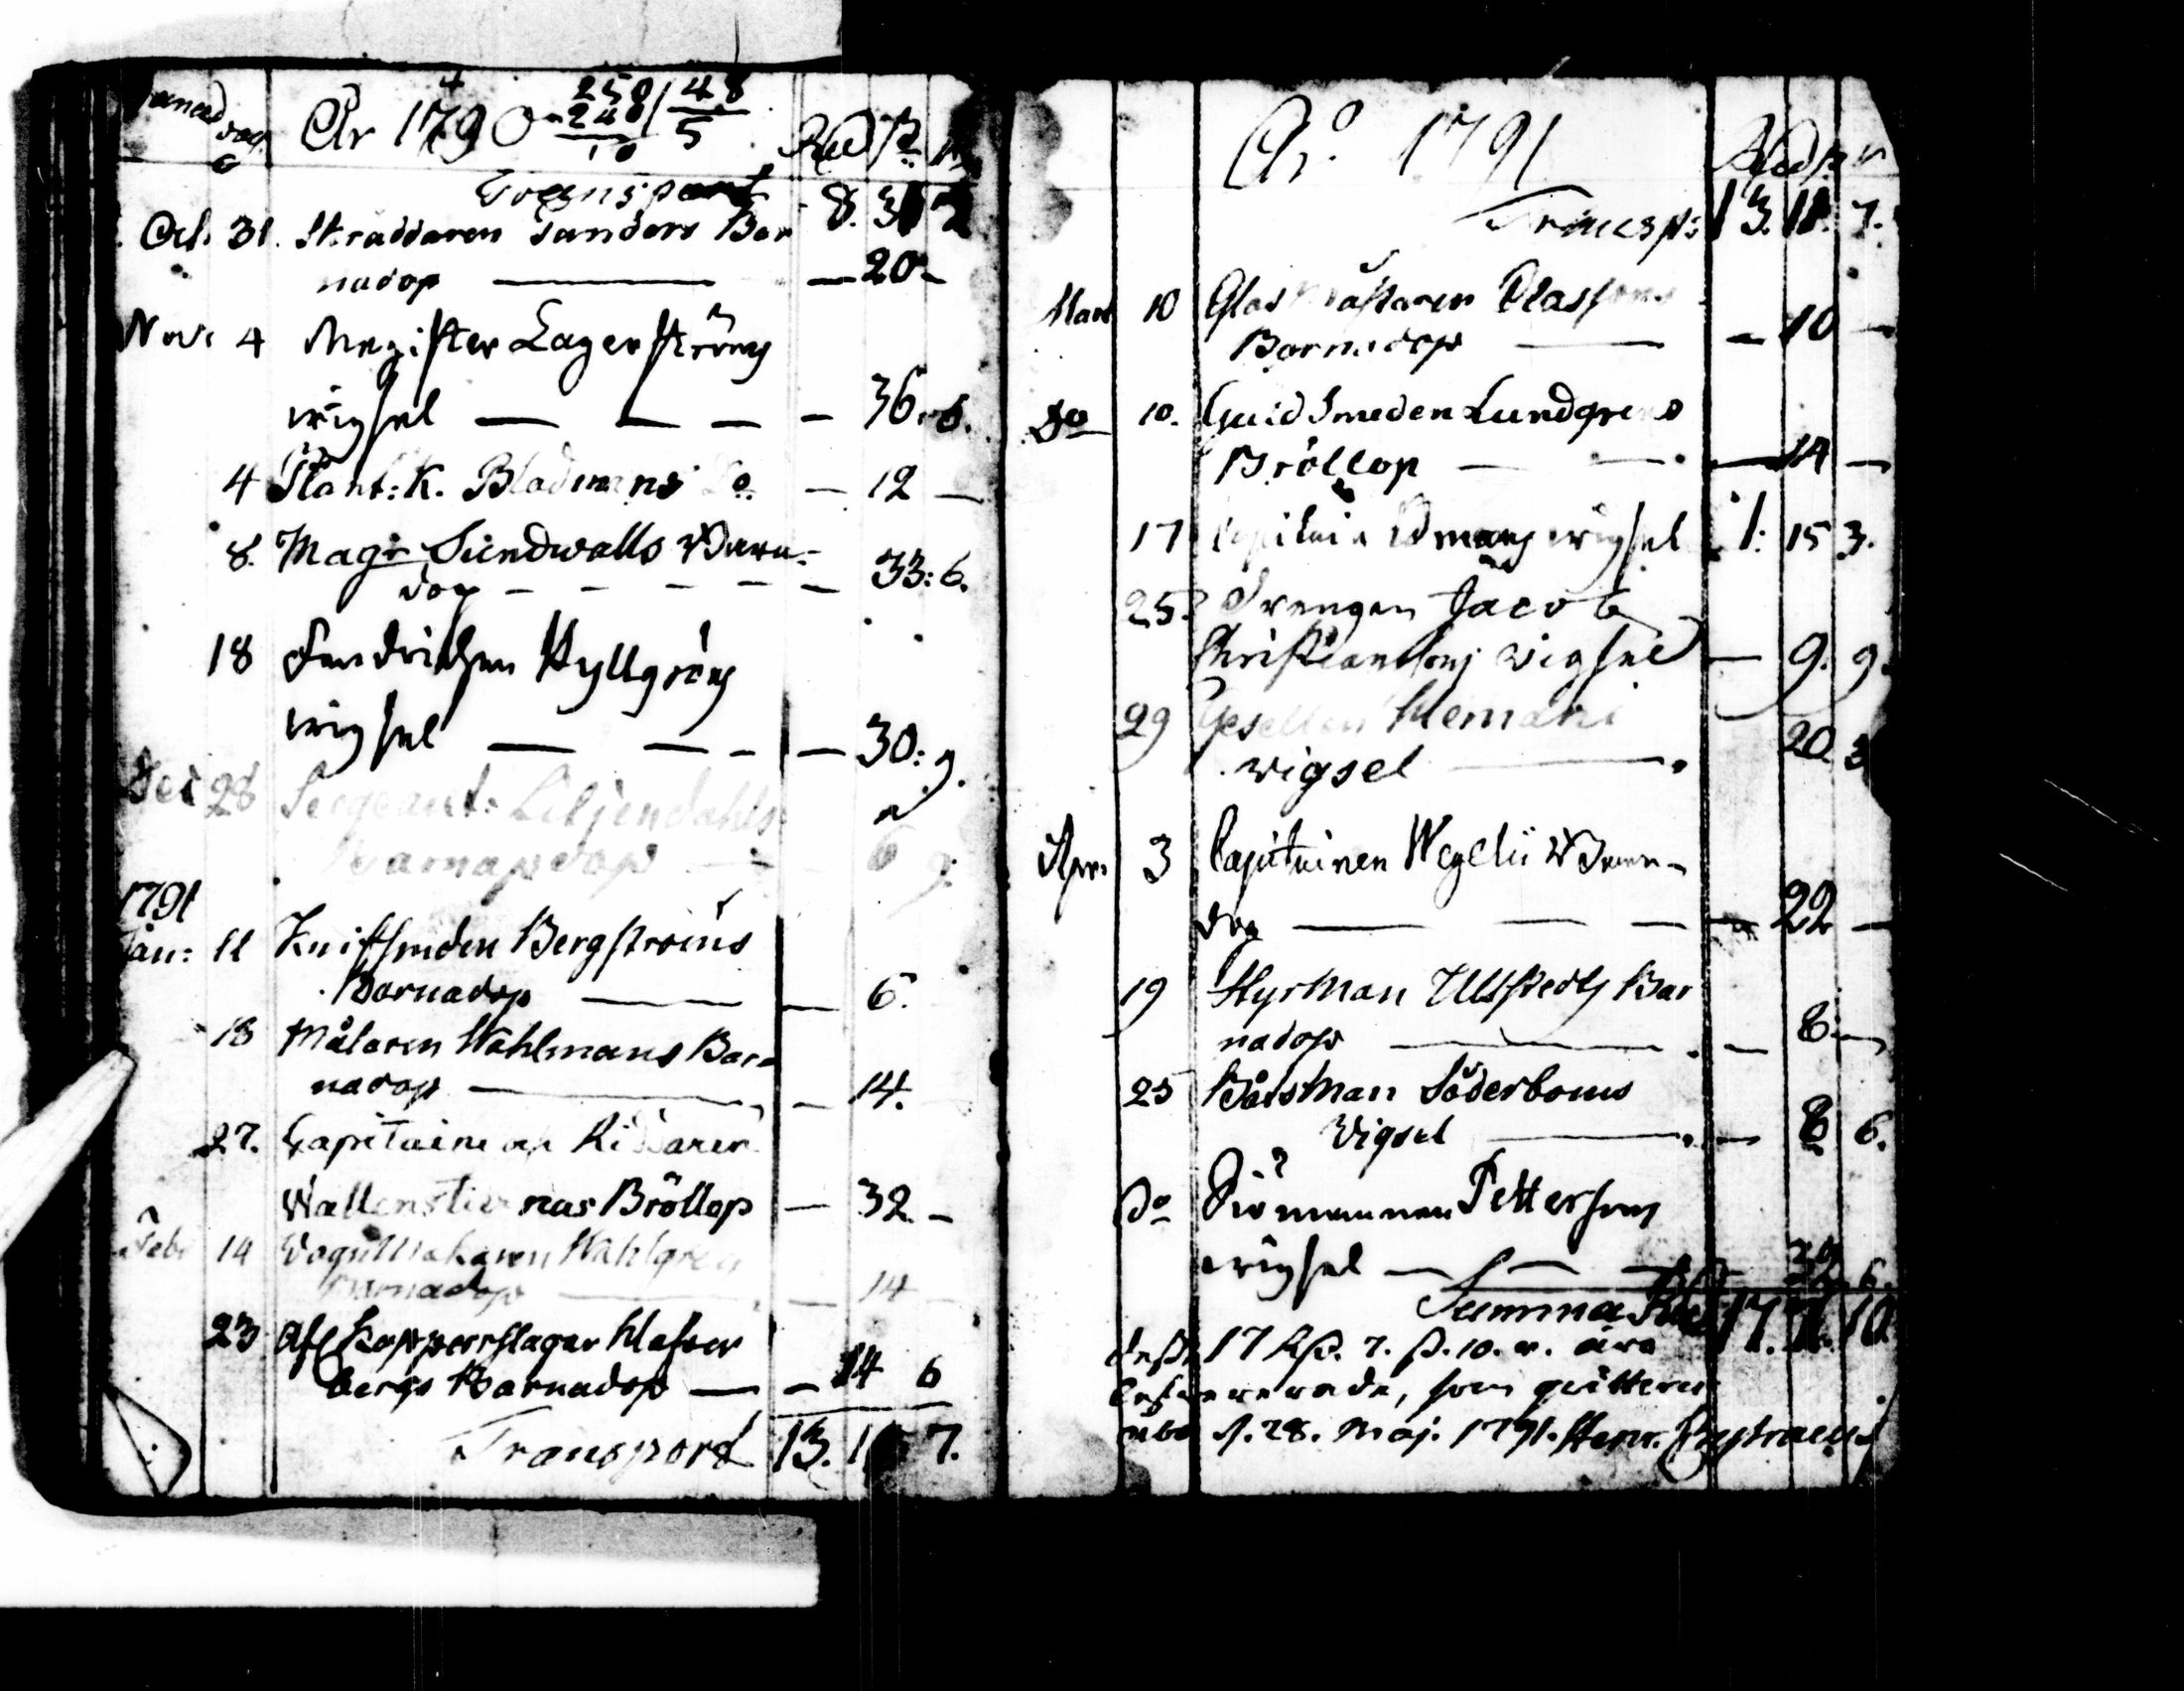 Månad dag. År 1790 Rd ß
250 / 48
240 / 5
10
Transport 8. 3
Oct. 31. Skräddaren Sanders Bar
nadop — — 20 -
Nov. 4 Magister Lagerströms
wigsel — — — — 36. 6.
4 K. Bladmans Do. — 12 —
8. Magr Sundwalls Barn-
dop - - - - - 33: 6.
18 Fendrichen Kyllgrens
wigsel — — - — 30: 9.
Dec 28 Sergeant: Liljendahls
Barnadop — 6 9.
1791
Jan: 11 Knifsmeden Bergströms
Barnadop — — 6.
13 Målaren Wahlmans Bar-
nadop — — 14.
27. Capitaine och Riddaren
Wallenstiernas Bröllop — 32 -
Feb: 14 Wahlgrens
Barnadop — — 14
23 Afl Kopparslagar Klefver
bergs Barnadop — — 14 6
Transport 13. 11 7.
Aro 1791 Rd ß r
Transp: 13. 11. 7.
Mart 10 Glasmästaren Classons
Barnadop — — 10 —
Do 10. Guldsmeden Lundgrens
Bröllop — — — 14 —
17 Capitain Ömans wigsel 1: 15 3.
25. Drengen Jacob
Christianssons wigsel — 9. 9.
29 Gesellen Klemani
wigsel — 20. 3
Apr: 3 Capitainen Wegelii Barn-
dop — — — — 22 —
19 Styrman Ullstedts Bar
nadop — — 8 —
25 Båtsman Söderboms
Vigsel — — 8 6.
Do Siömannen Pettersons
wigsel — — — 6.
Summa Rd 17. 7. 10
desse 17 Rd. 7. ß. 10. r. äro
levererade, som qvitteras
Åbo d. 28. Maj. 1791. Henr.